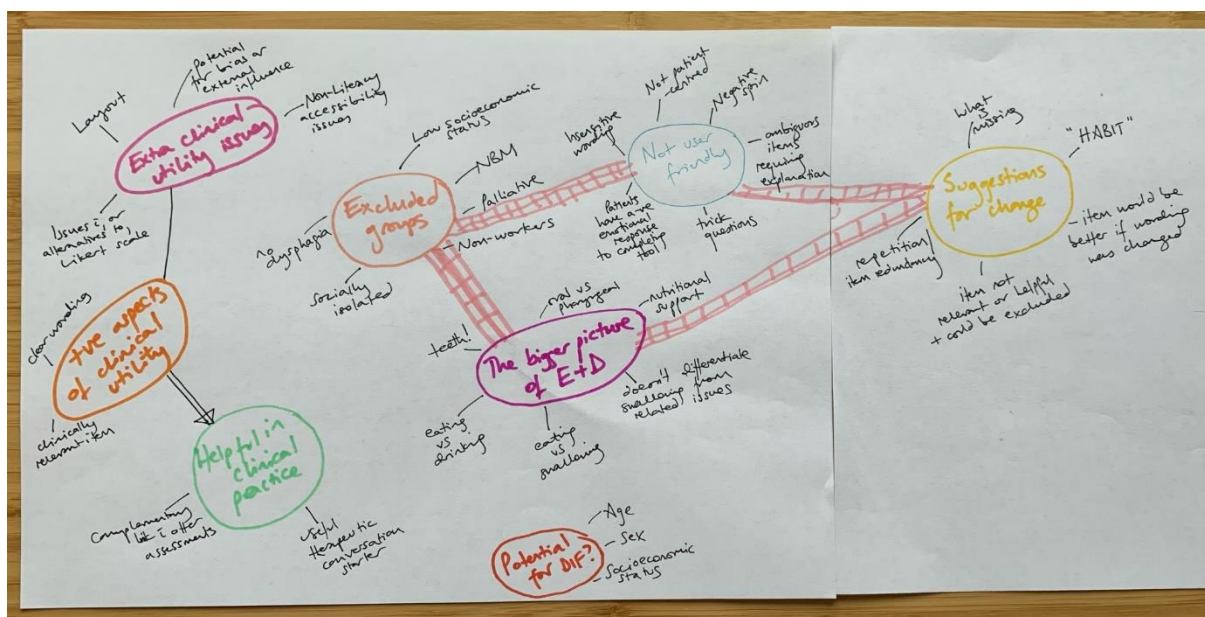 Layout
Potential
for bias or
external
influence
Non-literacy
accessibility
issues
Extra clinical
utility issues
Issues c̄, or
alternatives to,
Likert scale
clear wording
+ve aspects
of clinical
utility
clinically
relevant item
Helpful in
clinical
practice
Complementary
link c̄ other
assessments
useful
therapeutic
conversation
starter
Low socioeconomic
status
NBM
Palliative
Non-workers
socially
isolated
no
dysphagia
Excluded
groups
Not patient
centred
Negative
spin
Insensitive
wording
ambiguous
items
requiring
explanation
Not user
friendly
Patients
have a -ve
emotional
response
to completing
tool
trick
questions
oral vs
pharyngeal
nutritional
support
teeth!
The bigger picture
of E+D
doesn't differentiate
swallowing from
related issues
eating
vs
drinking
eating
vs
swallowing
Age
Sex
Socioeconomic
status
Potential
for DIF?
What
is
missing
"HABIT"
Suggestions
for change
item would be
better if wording
was changed
repetition/
item redundancy
item not
relevant or helpful
+ could be excluded